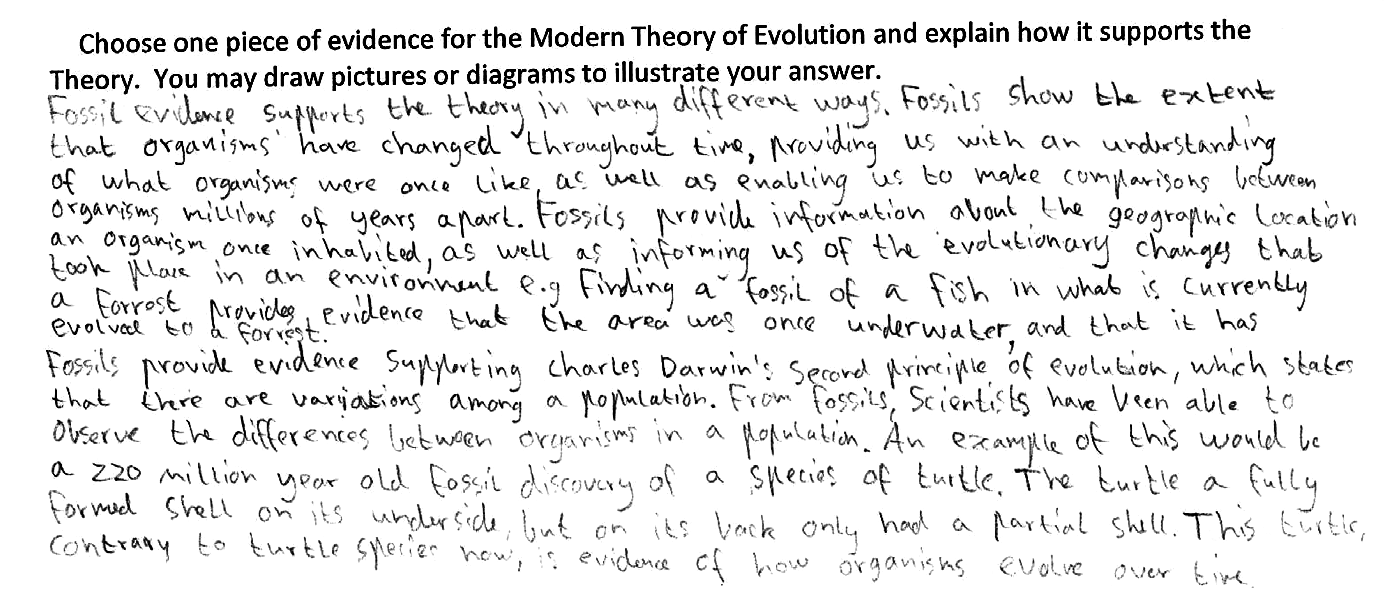 Choose one piece of evidence for the Modern Theory of Evolution and explain how it supports the
Theory. You may draw pictures or diagrams to illustrate your answer.
Fossil evidence supports the theory in many different ways. Fossils show the extent
that organisms have changed throughout time, providing us with an understanding
of what organisms were once like, as well as enabling us to make comparisons between
organisms millions of years apart. Fossils provide information about the geographic location
an organism once inhabited, as well as informing us of the evolutionary changes that
took place in an environment e.g Finding a fossil of a fish in what is currently
a forrost provides evidence that the area was once underwater, and that it has
evolved to a forrest.
Fossils provide evidence supporting Charles Darwin's second principle of evolution, which states
that there are variations among a population. From fossils, Scientists have been able to
observe the differences between organisms in a population. An example of this would be
a 220 million year old fossil discovery of a species of turtle. The turtle a fully
formed shell on its underside, but on its back only had a partial shell. This turtle,
contrary to turtle species now, is evidence of how organisms evolve over time.